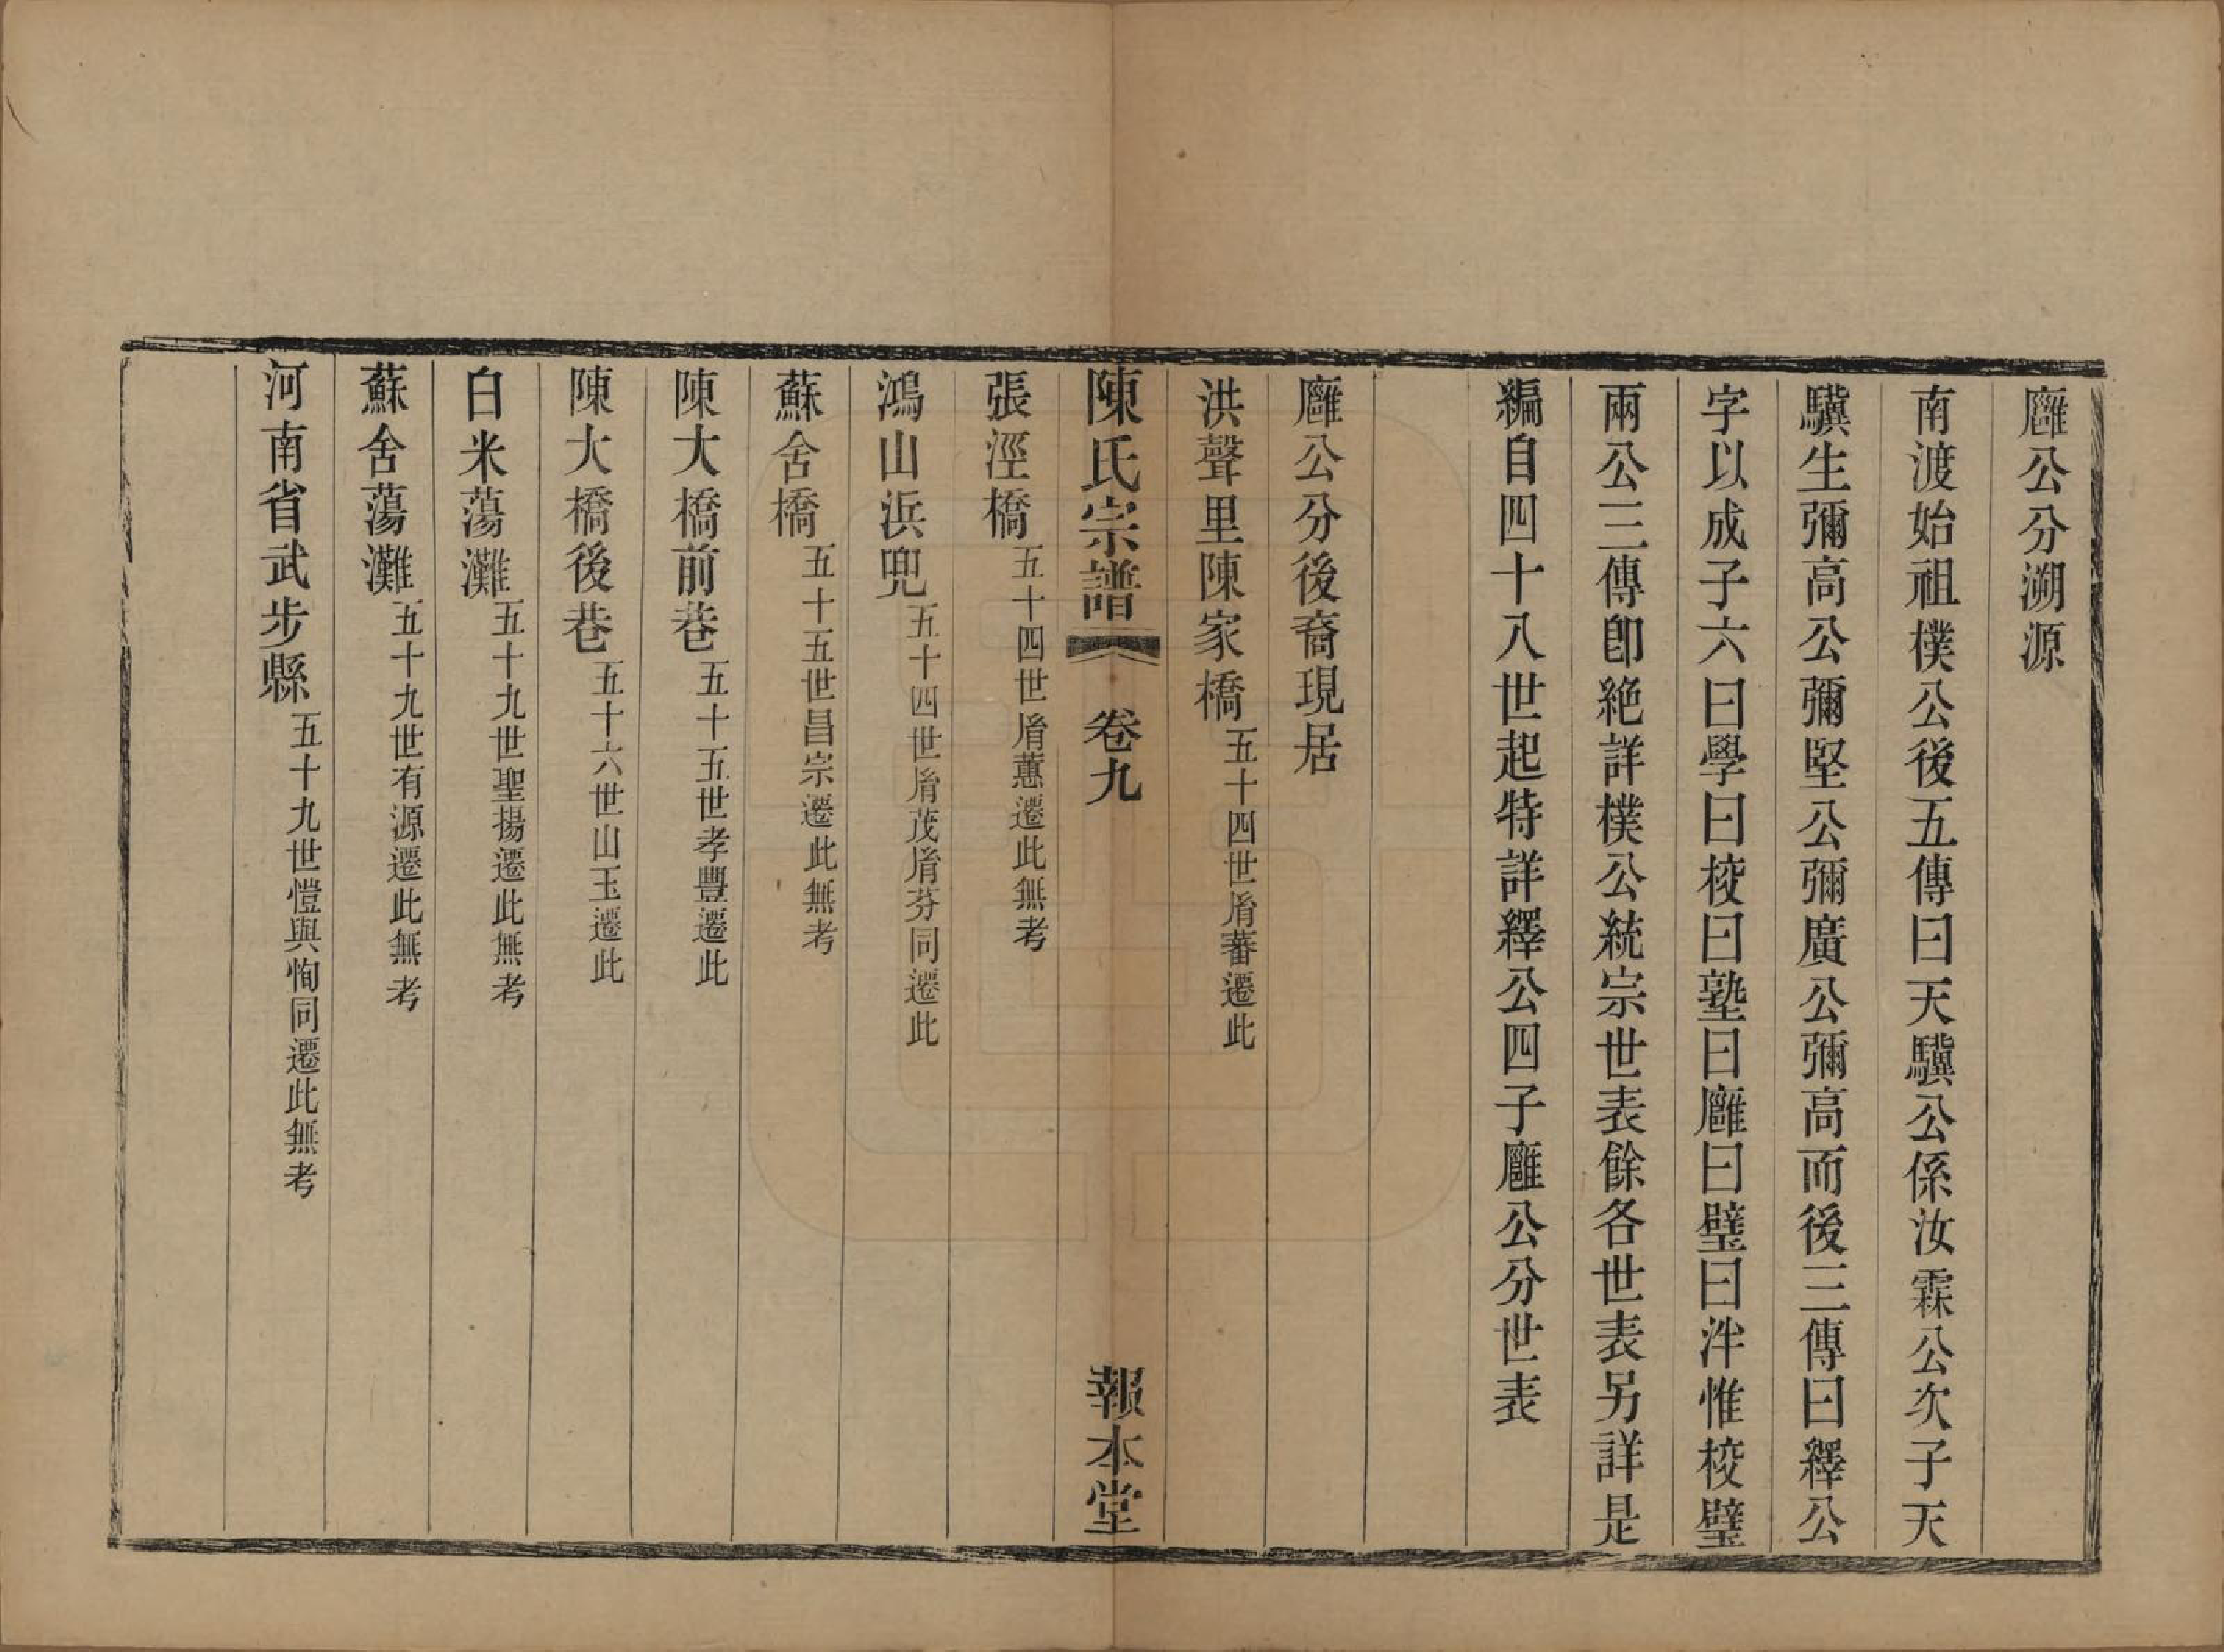 廱公分溯源
南渡始祖樸公後五傳曰天驥公係汝霖公次子天
驥生彌高公彌堅公彌廣公彌高而後三傳曰繹公
字以成子六曰學曰校曰塾曰廱曰璧曰泮惟校璧
兩公三傳卽絶詳樸公統宗世表餘各世表另詳是
編自四十八世起特詳繹公四子廱公分世表
廱公分後裔現居
洪聲里陳家橋五十四世㡳蕃遷此
陳氏宗譜 卷九 報本堂
張涇橋五十四世㡳蕙遷此無考
鴻山浜兜五十四世㡳茂㡳芬同遷此
蘇舍橋五十五世昌宗遷此無考
陳大橋前巷五十五世孝豐遷此
陳大橋後巷五十六世山玉遷此
白米蕩灘五十九世聖揚遷此無考
蘇舍蕩灘五十九世有源遷此無考
河南省武步縣五十九世愷與恂同遷此無考